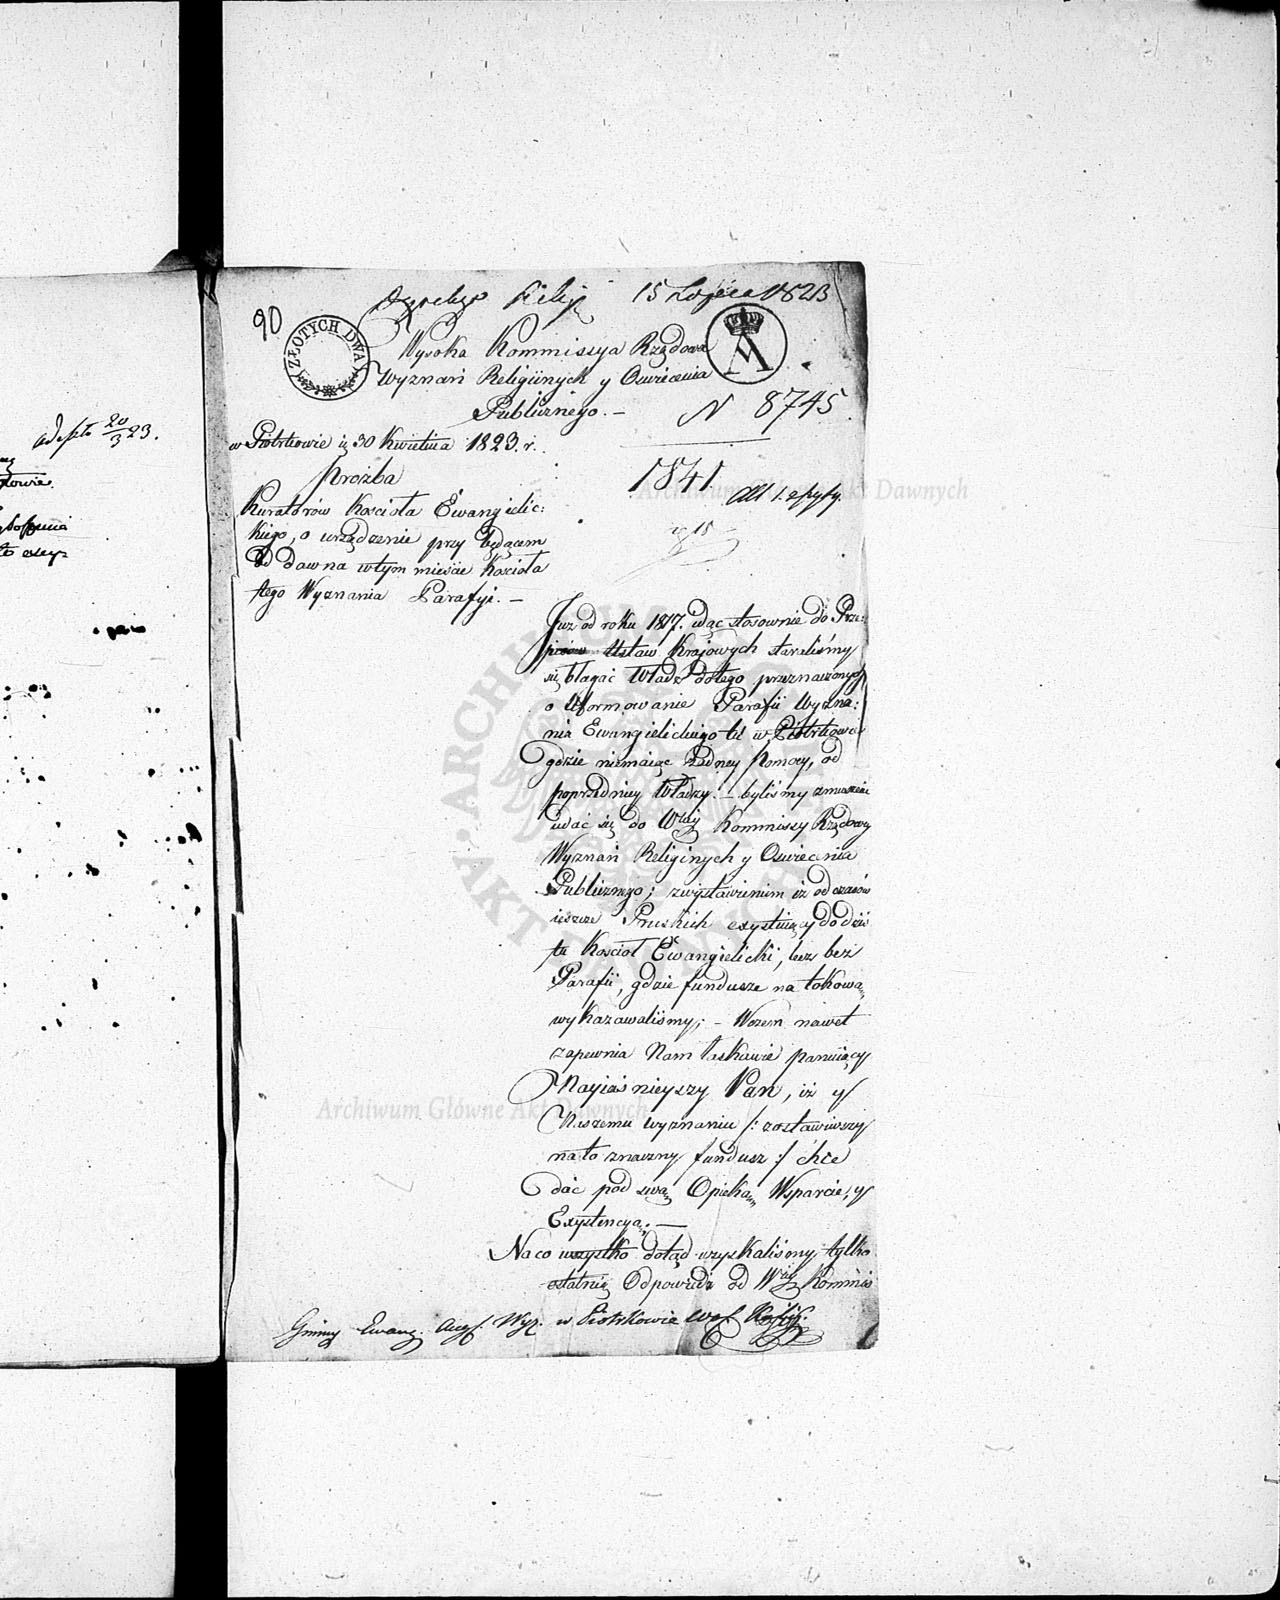 adeszło 20/3 23.
15 1823
90
ZŁOTYCH DWA
Wysoka Kommissya Rządowa
Wyznań Religiinych y Oswiecenia
Publicznego. –
N 8745
w Piotrkowie d 30 Kwietnia 1823. r.
1841
Prozba
Kuratorów Koscioła Ewangielic:
kiego, o urządzenie przy będącem
od dawna w tym miescie Koscioła
tego Wyznania Parafyi. –
Już od roku 1817. idąc stosownie do Prze:
pisów Ustaw Krajowych staraliśmy
się błagać Władz do tego przeznaczonych
o Uformowanie Parafii Wyzna:
nia Ewangielickiego tu w Piotrkowie
gdzie niemaiąc żadney Pomocy, od
poprzedniey Władzy. – byliśmy zmuszeni
udać się do Wney Kommissy Rządowey
Wyznań Religinych y Oswiecenia
Publicznego; z wystawieniem iż od czasów
ieszcze Pruskich exystuiący do dziś
tu Kosciol Ewangielicki, lecz bez
Parafii, gdzie fundusze na takową
wykazawaliśmy; – Wczem nawet
zapewnia Nam łaskawie panuiący
Nayiaśnieyszy Pan, iż y
Naszemu wyznaniu /: zostawiwszy
na to znaczny fundusz :/ chce
dać pod swą Opiekę, Wsparcie, y
Exystencyą. —
Na co wszystko dotąd uzyskaliśmy tylko
ostatnią Odpowiedz od Wney Kommis
Gminy Ewang. Aug. Wyz. w Piotrkowie
Archiwum Główne Akt Dawnych
Archiwum Główne Akt Dawnych